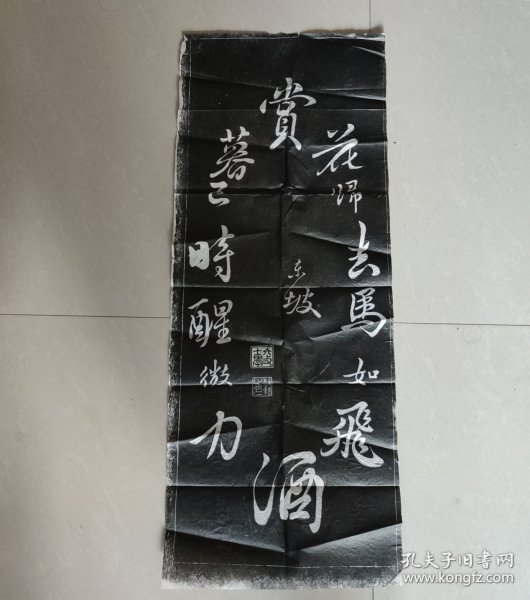 賞
花歸去馬如飛
酒
力微醒時已暮
东坡
孔夫子旧书网
www.kongfz.com